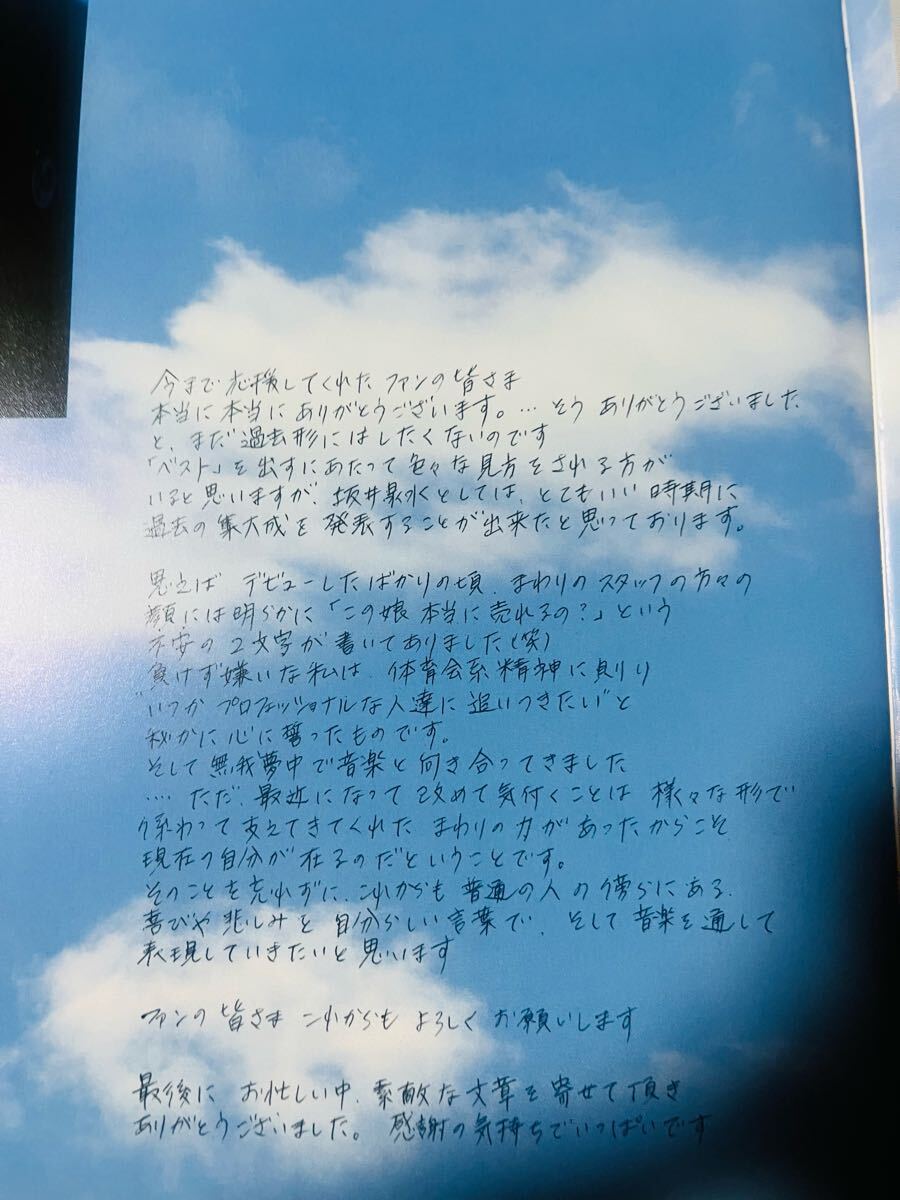 今まで応援してくれたファンの皆さま
本当に本当にありがとうございます。… そう ありがとうございました
と、まだ過去形にはしたくないのです
「ベスト」を出すにあたって色々な見方をされる方が
いると思いますが、坂井泉水としては、とてもいい時期に
過去の集大成を発表することが出来たと思っております。
思えば デビューしたばかりの頃、まわりのスタッフの方々の
顔には明らかに「この娘 本当に売れるの?」という
不安の2文字が書いてありました(笑)
負けず嫌いな私は、体育会系精神に則り
"いつかプロフェッショナルな人達に追いつきたい"と
秘かに心に誓ったものです。
そして無我夢中で音楽と向き合ってきました
‥‥ ただ、最近になって改めて気付くことは 様々な形で
係わって支えてきてくれた まわりの力があったからこそ
現在の自分が在るのだということです。
そのことを忘れずに、これからも普通の人の傍らにある、
喜びや悲しみを自分らしい言葉で、そして音楽を通して
表現していきたいと思います
ファンの皆さま これからも よろしく お願いします
最後に お忙しい中、素敵な文章を寄せて頂き
ありがとうございました。 感謝の気持ちでいっぱいです